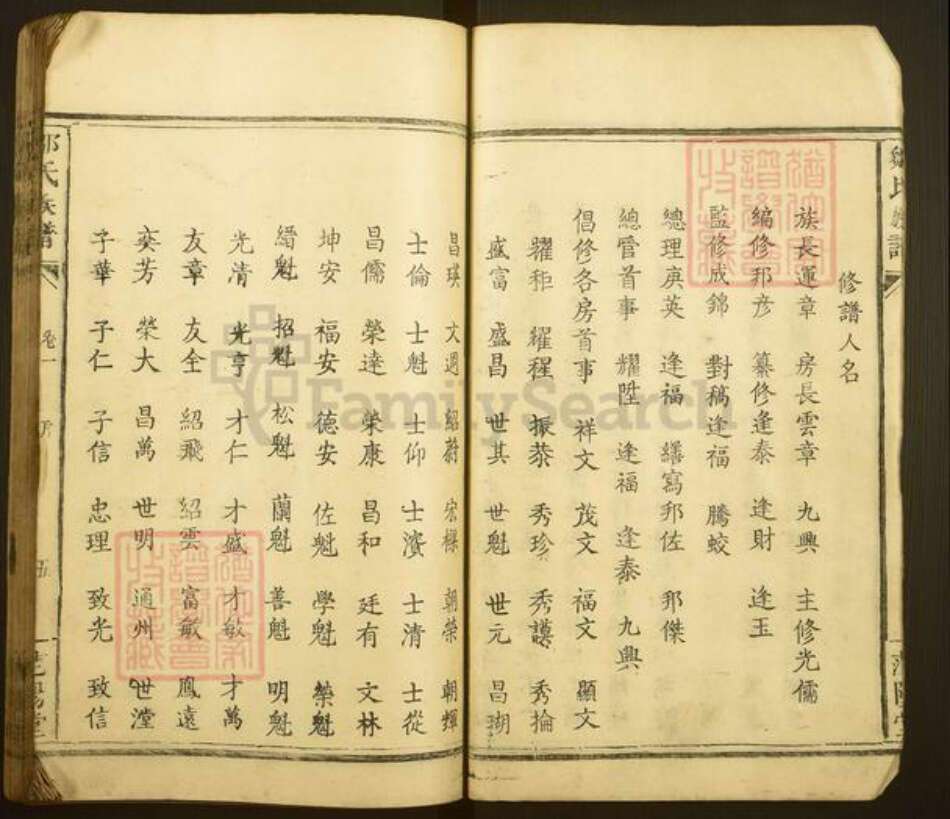 修譜人名
族長運章 房長雲章 九興 主修光儒
編修邦彥 纂修逢泰 逢財 逢玉
監修成錦 對稿逢福 騰蛟
總理庚英 逢福 繕寫邦佐 邦傑
總管首事 耀陞 逢福 逢泰 九興
倡修各房首事 祥文 茂文 福文 顯文
耀秬 耀程 振恭 秀珍 秀謨 秀掄
盛富 盛昌 世其 世魁 世元 昌瑚
昌瑛 文週 紹蔚 宏樑 朝榮 朝輝
士倫 士魁 士仰 士濱 士清 士從
昌儒 榮達 榮康 昌和 廷有 文林
坤安 福安 德安 佐魁 學魁 榮魁
縉魁 招魁 松魁 蘭魁 善魁 明魁
光清 光亨 才仁 才盛 才敏 才萬
友章 友全 紹飛 紹雲 富敏 鳳遠
奕芳 榮大 昌萬 世明 通州 世瀅
子華 子仁 子信 忠理 致光 致信
鄒氏族譜 卷一 五
鄒氏族譜
FamilySearch